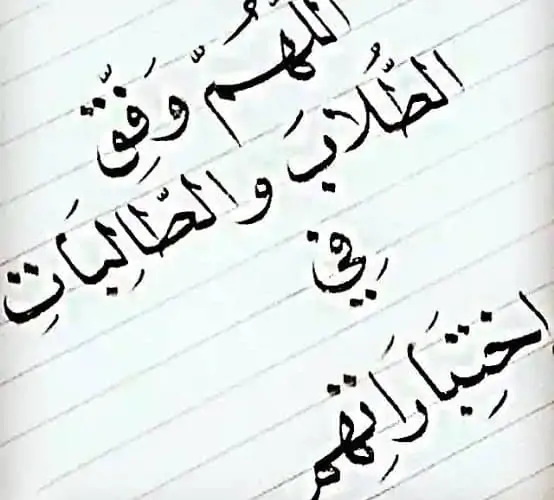 اللَّهُمَّ وَفِّقِ
الطُّلَابَ وَالطَّالِبَاتِ
فِي
اخْتِبَارَاتِهِمْ